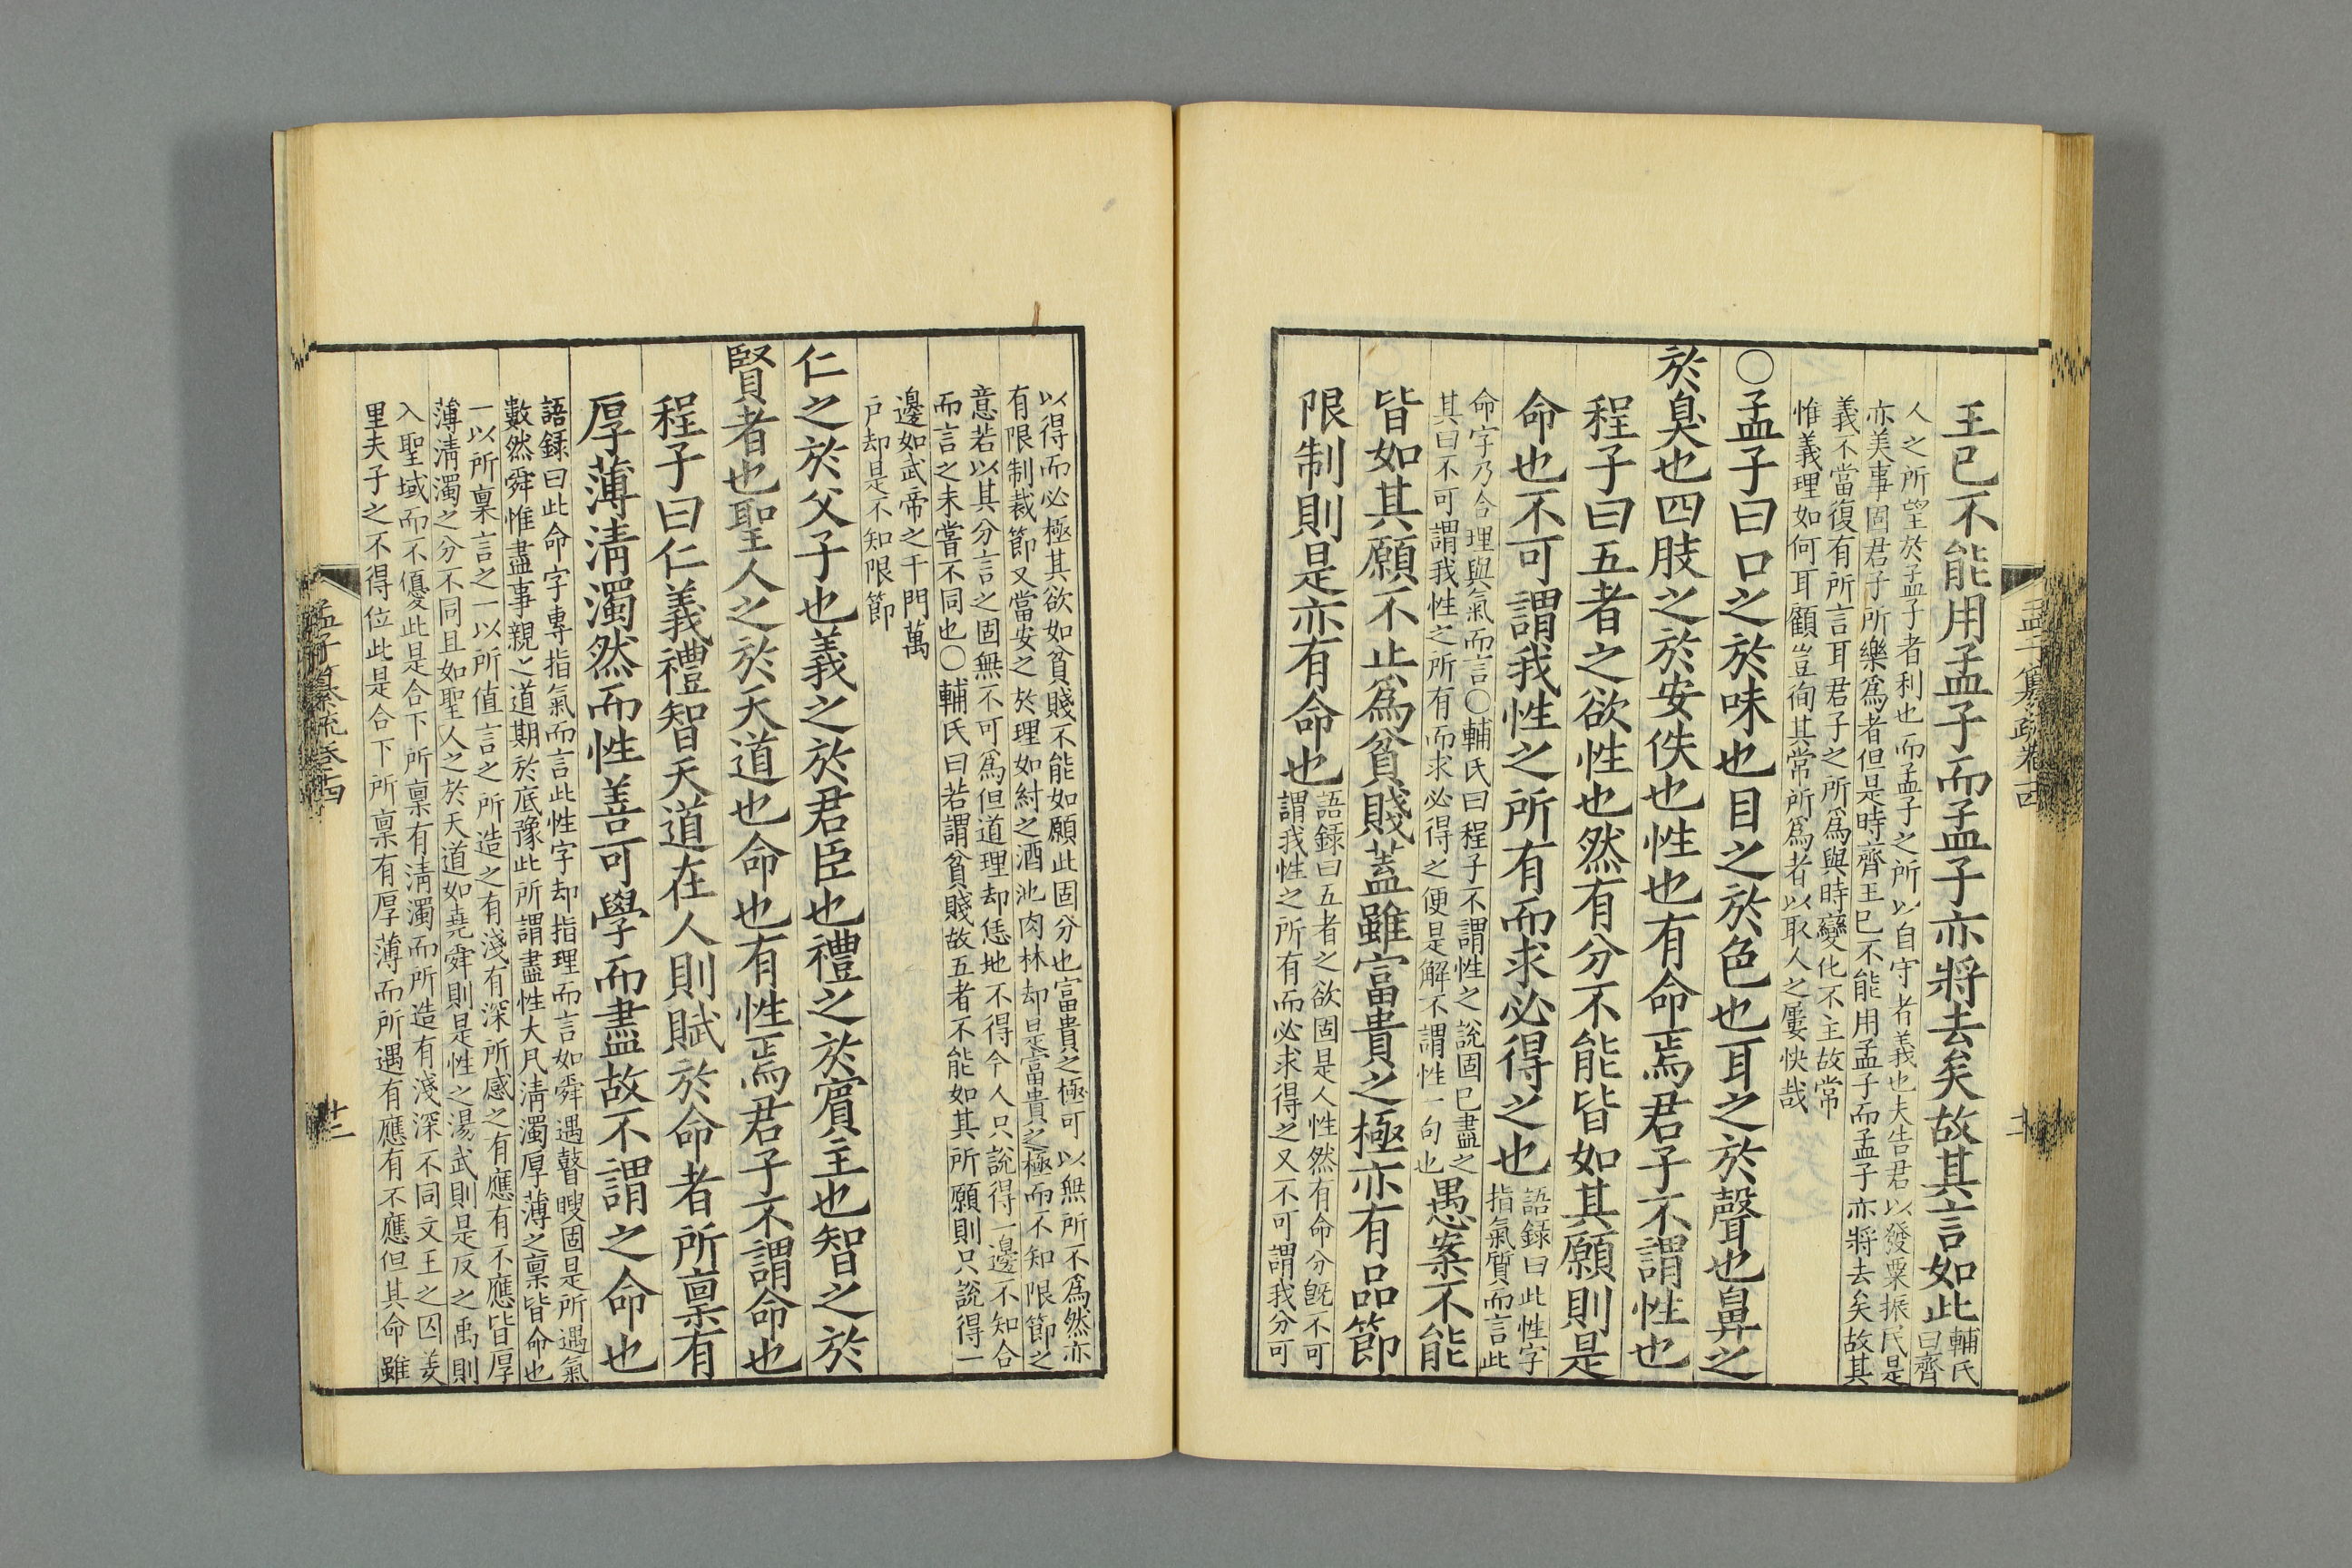 王已不能用孟子而孟子亦將去矣故其言如此輔氏
曰齊
人之所望於孟子者利也而孟子之所以自守者義也夫告君以發粟振民是
亦美事固君子所樂爲者但是時齊王已不能用孟子而孟子亦將去矣故其
義不當復有所言耳君子之所爲與時變化不主故常
惟義理如何耳顧豈徇其常所爲者以取人之屢快哉
○孟子曰口之於味也目之於色也耳之於聲也鼻之
於臭也四肢之於安佚也性也有命焉君子不謂性也
程子曰五者之欲性也然有分不能皆如其願則是
命也不可謂我性之所有而求必得之也語錄曰此性字
指氣質而言此
命字乃合理與氣而言○輔氏曰程子不謂性之說固已盡之
其曰不可謂我性之所有而求必得之便是解不謂性一句也愚案不能
皆如其願不止爲貧賤蓋雖富貴之極亦有品節
限制則是亦有命也語錄曰五者之欲固是人性然有命分旣不可
謂我性之所有而必求得之又不可謂我分可
以得而必極其欲如貧賤不能如願此固分也富貴之極可以無所不爲然亦
有限制裁節又當安之於理如紂之酒池肉林却是富貴之極而不知限節之
意若以其分言之固無不可爲但道理却恁地不得今人只說得一邊不知合
而言之未嘗不同也○輔氏曰若謂貧賤故五者不能如其所願則只說得一
邊如武帝之千門萬
戶却是不知限節
仁之於父子也義之於君臣也禮之於賓主也智之於
賢者也聖人之於天道也命也有性焉君子不謂命也
程子曰仁義禮智天道在人則賦於命者所禀有
厚薄淸濁然而性善可學而盡故不謂之命也
語錄曰此命字專指氣而言此性字却指理而言如舜遇瞽瞍固是所遇氣
數然舜惟盡事親之道期於底豫此所謂盡性大凡淸濁厚薄之禀皆命也
一以所禀言之一以所值言之所造之有淺有深所感之有應有不應皆厚
薄淸濁之分不同且如聖人之於天道如堯舜則是性之湯武則是反之禹則
入聖域而不優此是合下所禀有淸濁而所造有淺深不同文王之囚羑
里夫子之不得位此是合下所禀有厚薄而所遇有應有不應但其命雖
孟子纂疏卷十四